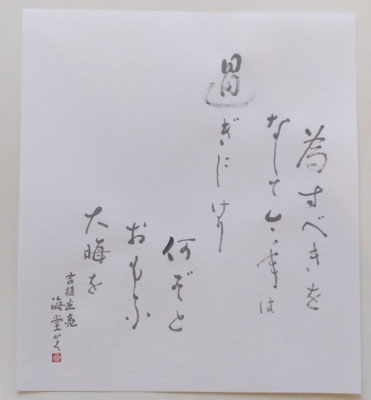 為すべきを
なして今年は
過ぎにけり
何ぞと
おもふ
大晦を
吉植庄亮
海堂かく